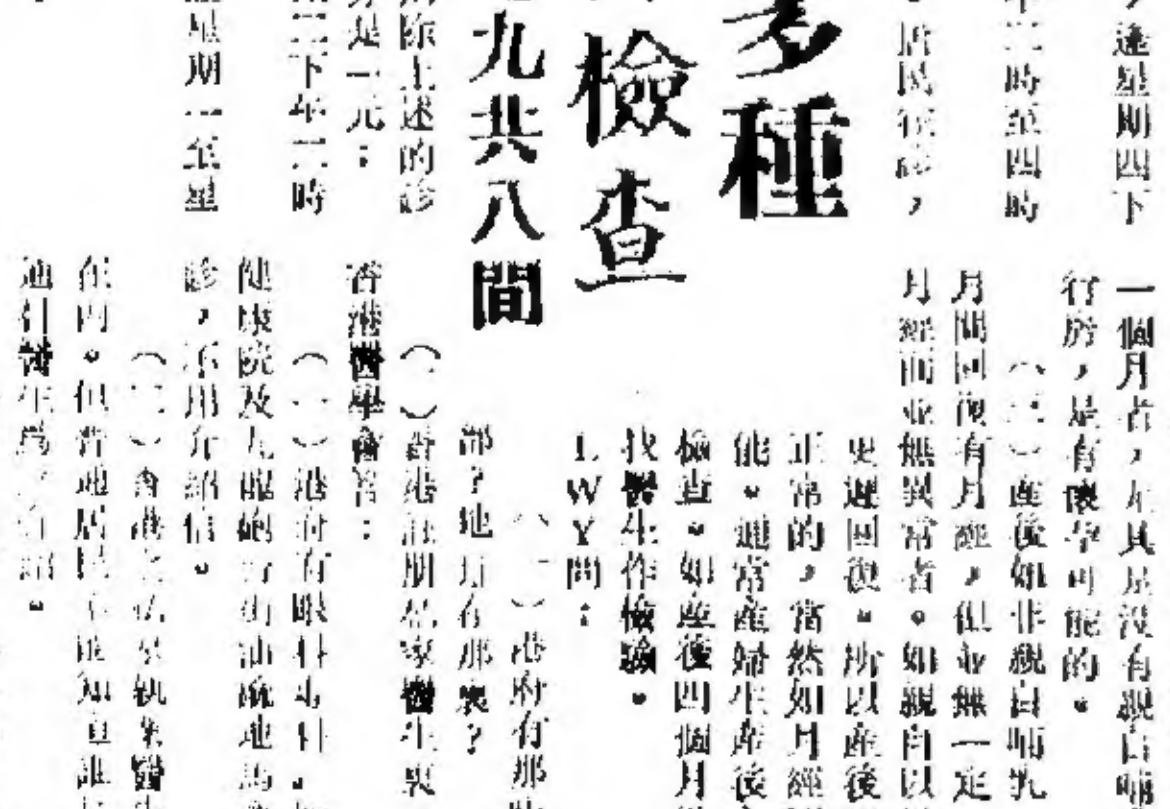 ，逢星期四下
午二時至四時
，居民往診，
多種
檢查
九共八間
除上述的診
是一元；
三下午二時
星期一至星
一個月者，尤其是沒有親自哺
行房，是有懷孕可能的。
（二）產後如非親自哺乳
月間回復有月經，但並無一定
月經而並無異常者。如親自以
更遲回復。所以產後
正常的，當然如月經
能。通常產婦生產後
檢查。如產後四個月
找醫生作檢驗。
L W Y問：
（一）港府有那
部？地址在那裏？
（二）香港註册 家醫生
香港醫學會答：
（一）港府有眼科專科。
健康院及九龍砲台街油蔴地
診，不用介紹信。
（二）香港之 執業醫生
在內。但普通居民 知道誰
通科醫生爲 介紹。